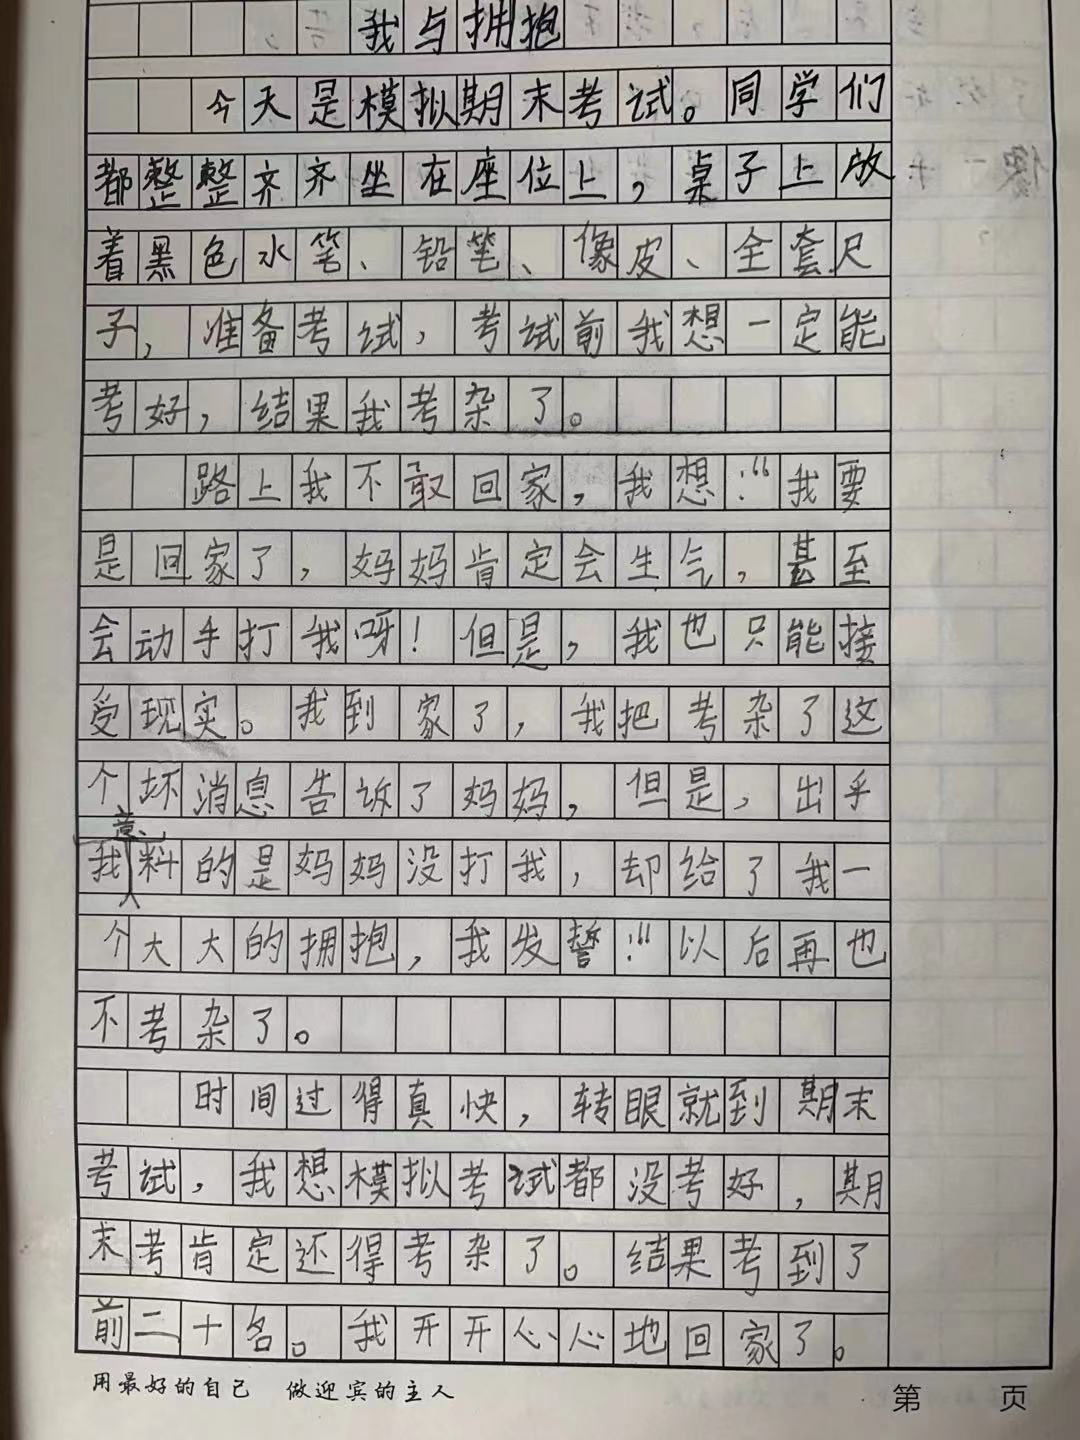 我与拥抱
今天是模拟期末考试。同学们
都整整齐齐坐在座位上，桌子上放
着黑色水笔、铅笔、像皮、全套尺
子，准备考试，考试前我想一定能
考好，结果我考杂了。
路上我不敢回家，我想：“我要
是回家了，妈妈肯定会生气，甚至
会动手打我呀！但是，我也只能接
受现实。我到家了，我把考杂了这
个坏消息告诉了妈妈，但是，出乎
我意料的是妈妈没打我，却给了我一
个大大的拥抱，我发誓：“以后再也
不考杂了。
时间过得真快，转眼就到期末
考试，我想模拟考试都没考好，期
末考肯定还得考杂了。结果考到了
前二十名。我开开心心地回家了。
用最好的自己 做迎宾的主人
第 页